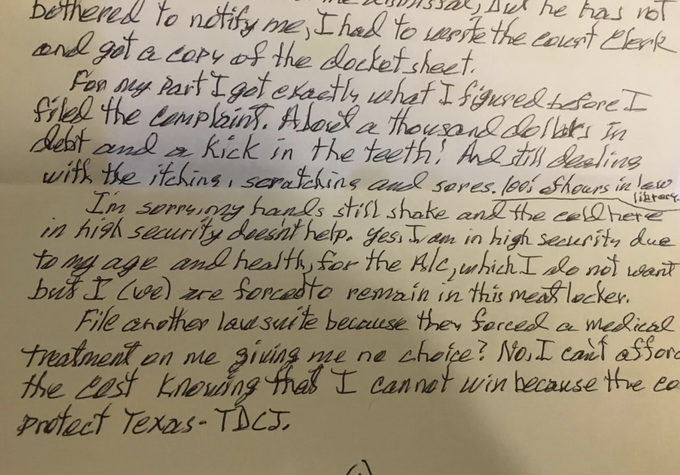 the dismissal, but he has not
bothered to notify me, I had to write the court Clerk
and got a copy of the docket sheet.
For my part I got exactly what I figured before I
filed the complaint. About a thousand dollars In
debt and a kick in the teeth! And still dealing
with the itching, scratching and sores. 100s of hours in law library.
I'm sorry, my hands still shake and the cold here
in high security doesnt help. yes, I am in high security due
to my age and health, for the A/c, which I do not want
but I (we) are forced to remain in this meat locker.
File another lawsuite because they forced a medical
treatment on me giving me no choice? No, I can't afford
the cost knowing that I cannot win because the co
protect Texas - TDCJ.